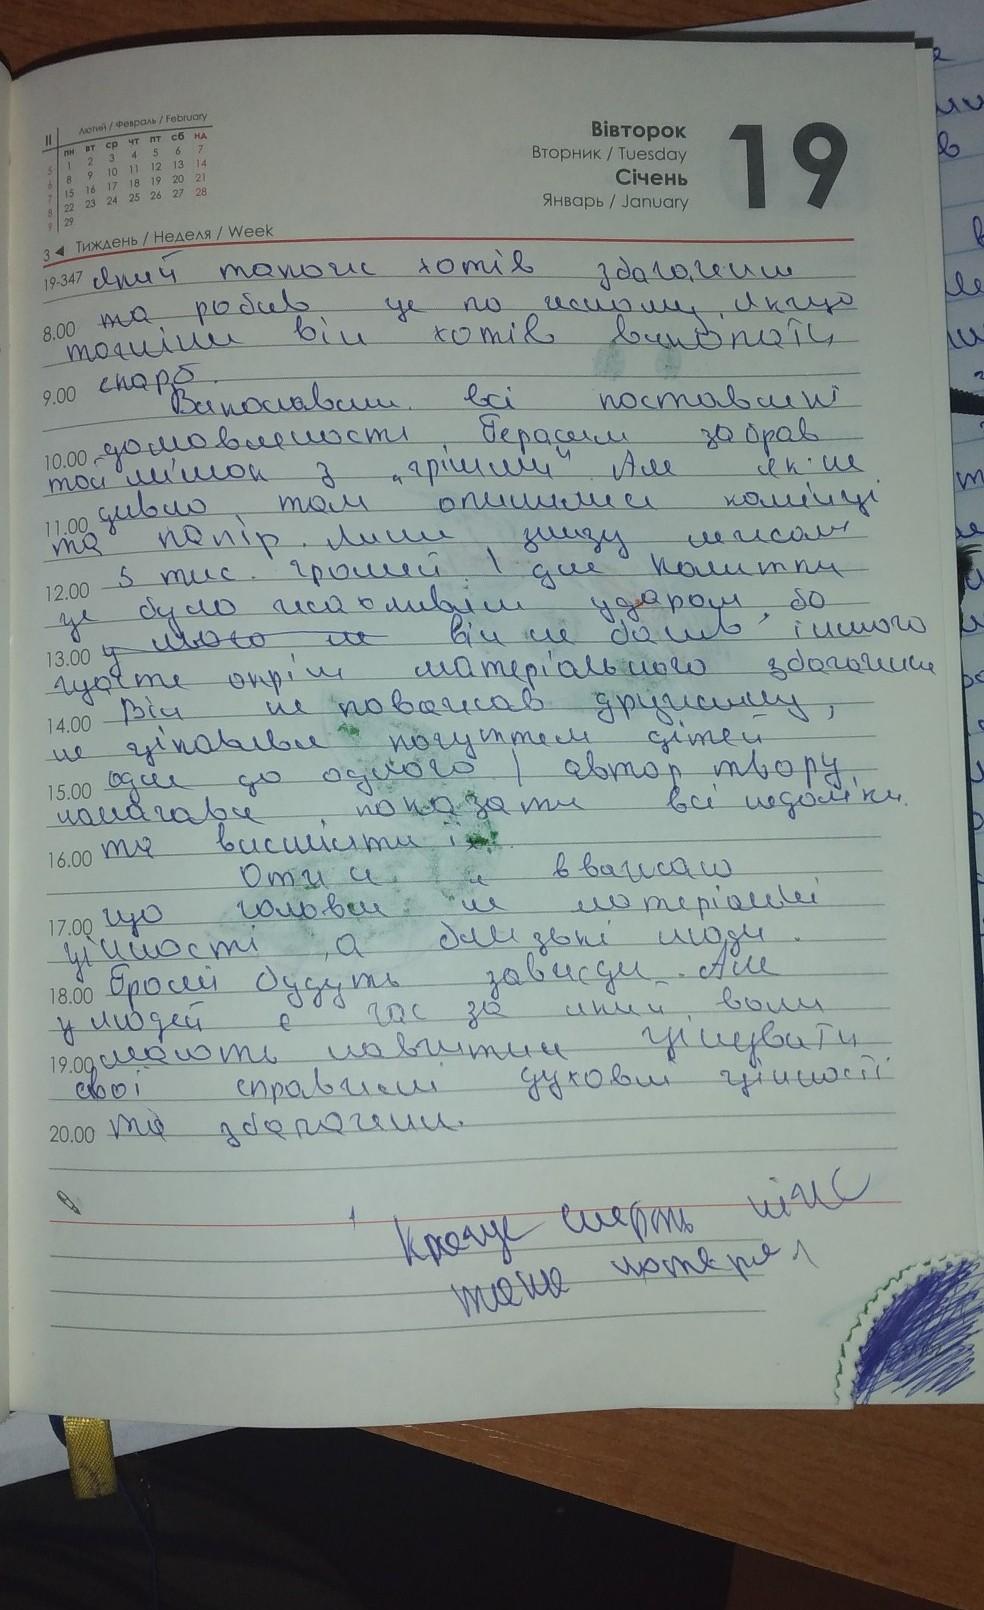 II Лютий / Февраль / February
пн вт ср чт пт сб нд
5 1 2 3 4 5 6 7
6 8 9 10 11 12 13 14
7 15 16 17 18 19 20 21
8 22 23 24 25 26 27 28
9 29
Вівторок
Вторник / Tuesday
Січень
Январь / January
19
3 ◄ Тиждень / Неделя / Week
19-347 який також хотів збагачення
8.00 та робив це по іншому, якщо
точніше він хотів викопати
9.00 скарб.
Виконавши всі поставлені
10.00 домовленості, Герасим забрав
той мішок з „грішми" Але як не
11.00 дивно, там опинилися комінці
та папір. Лише знизу
12.00 5 тис. грошей. І для Калитки
це було жахливим ударом, бо
13.00 у нього не він не бачив іншого
щастя окрім матеріального збагачення
14.00 Він не поважав дружину,
не цікавився почуттям дітей
15.00 один до одного І автор твору,
намагався показати всі недоліки
16.00 та висміяти їх.
Отже я вважаю
17.00 що головне не матеріальні
цінності, а близькі люди.
18.00 Гроші будуть завжди. Але
у людей є час за який вони
19.00 мають навчитися цінувати
свої справжні духовні цінності
20.00 та збагачення.
Краще смерть ніж
така потеря